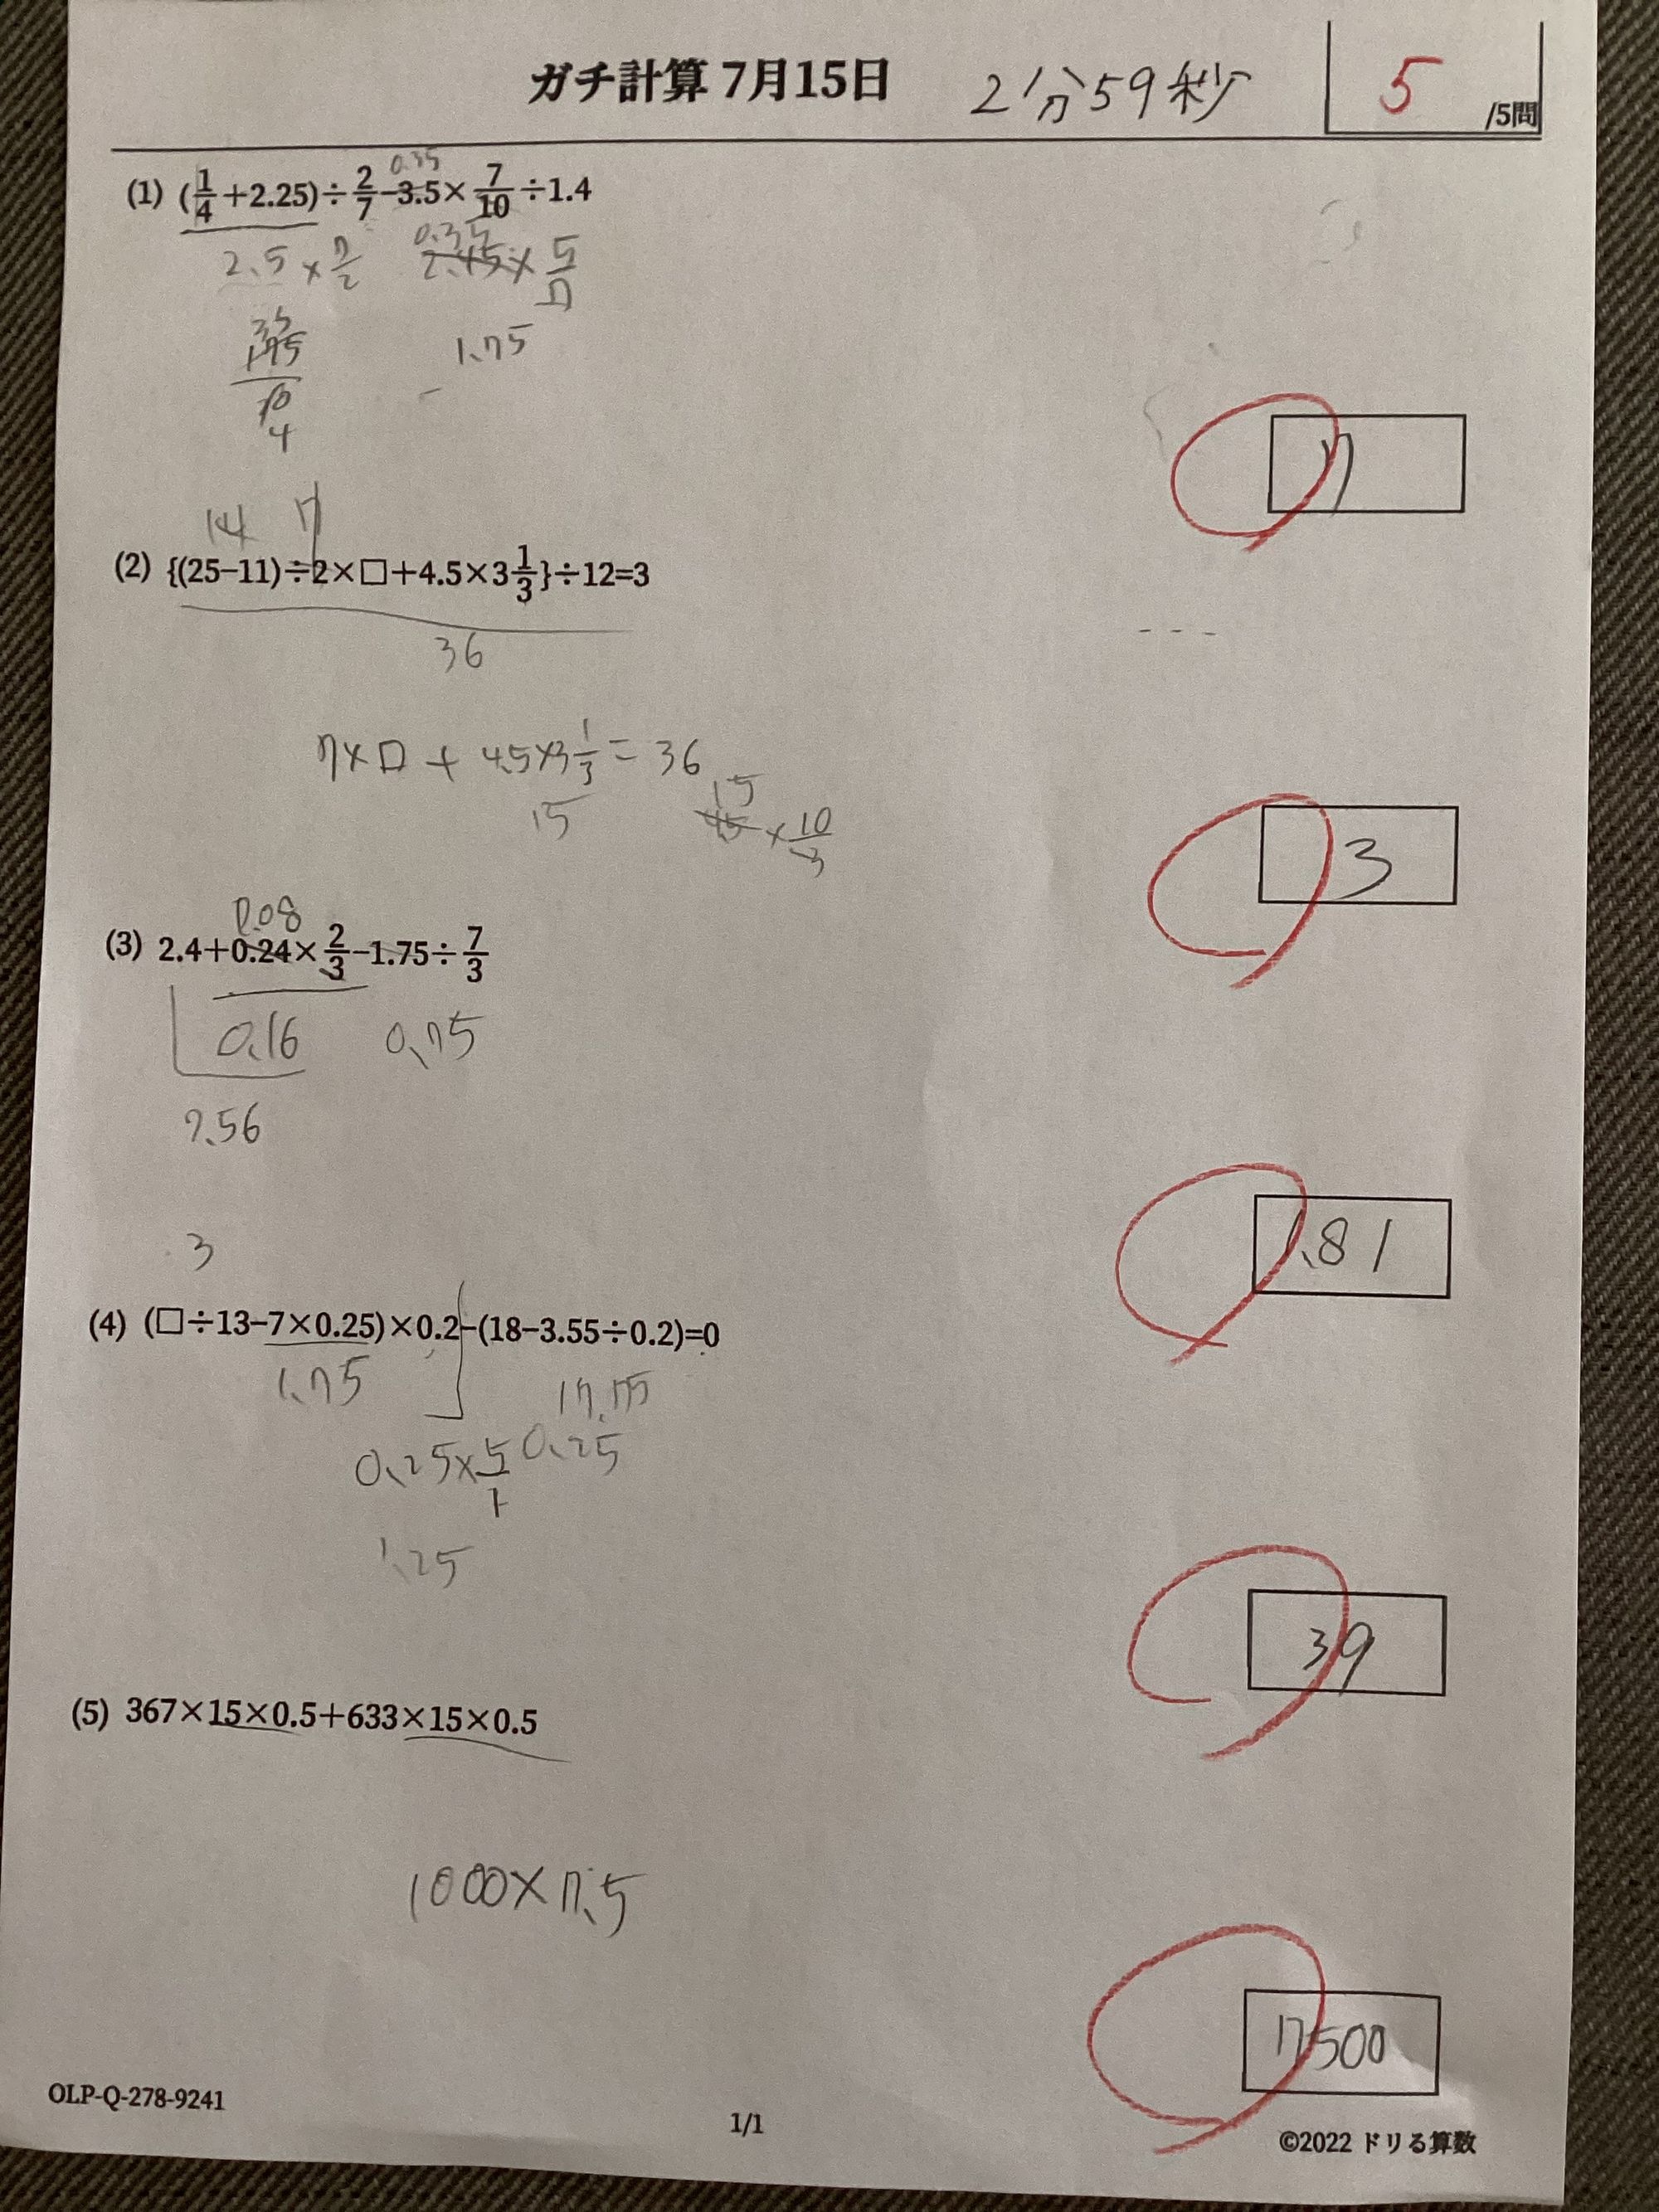 ガチ計算 7月15日 2分59秒 5 /5問
0.35
(1) (1/4+2.25)÷2/7−3.5×7/10÷1.4
0.35
2.5×7/2 2.45×5/7
35
175 1.75
10 −
4
7
14 7
(2) {(25−11)÷2×□+4.5×3 1/3}÷12=3
36
7×□+4.5×3 1/3=36
15 15
45×10/3
3
0.08
(3) 2.4+0.24×2/3−1.75÷7/3
0.16 0.75
2.56
1.81
3
(4) (□÷13−7×0.25)×0.2−(18−3.55÷0.2)=0
1.75 17.75
0.25×5/1 0.25
1.25
39
(5) 367×15×0.5+633×15×0.5
1000×7.5
7500
OLP-Q-278-9241
1/1
©2022 ドリる算数